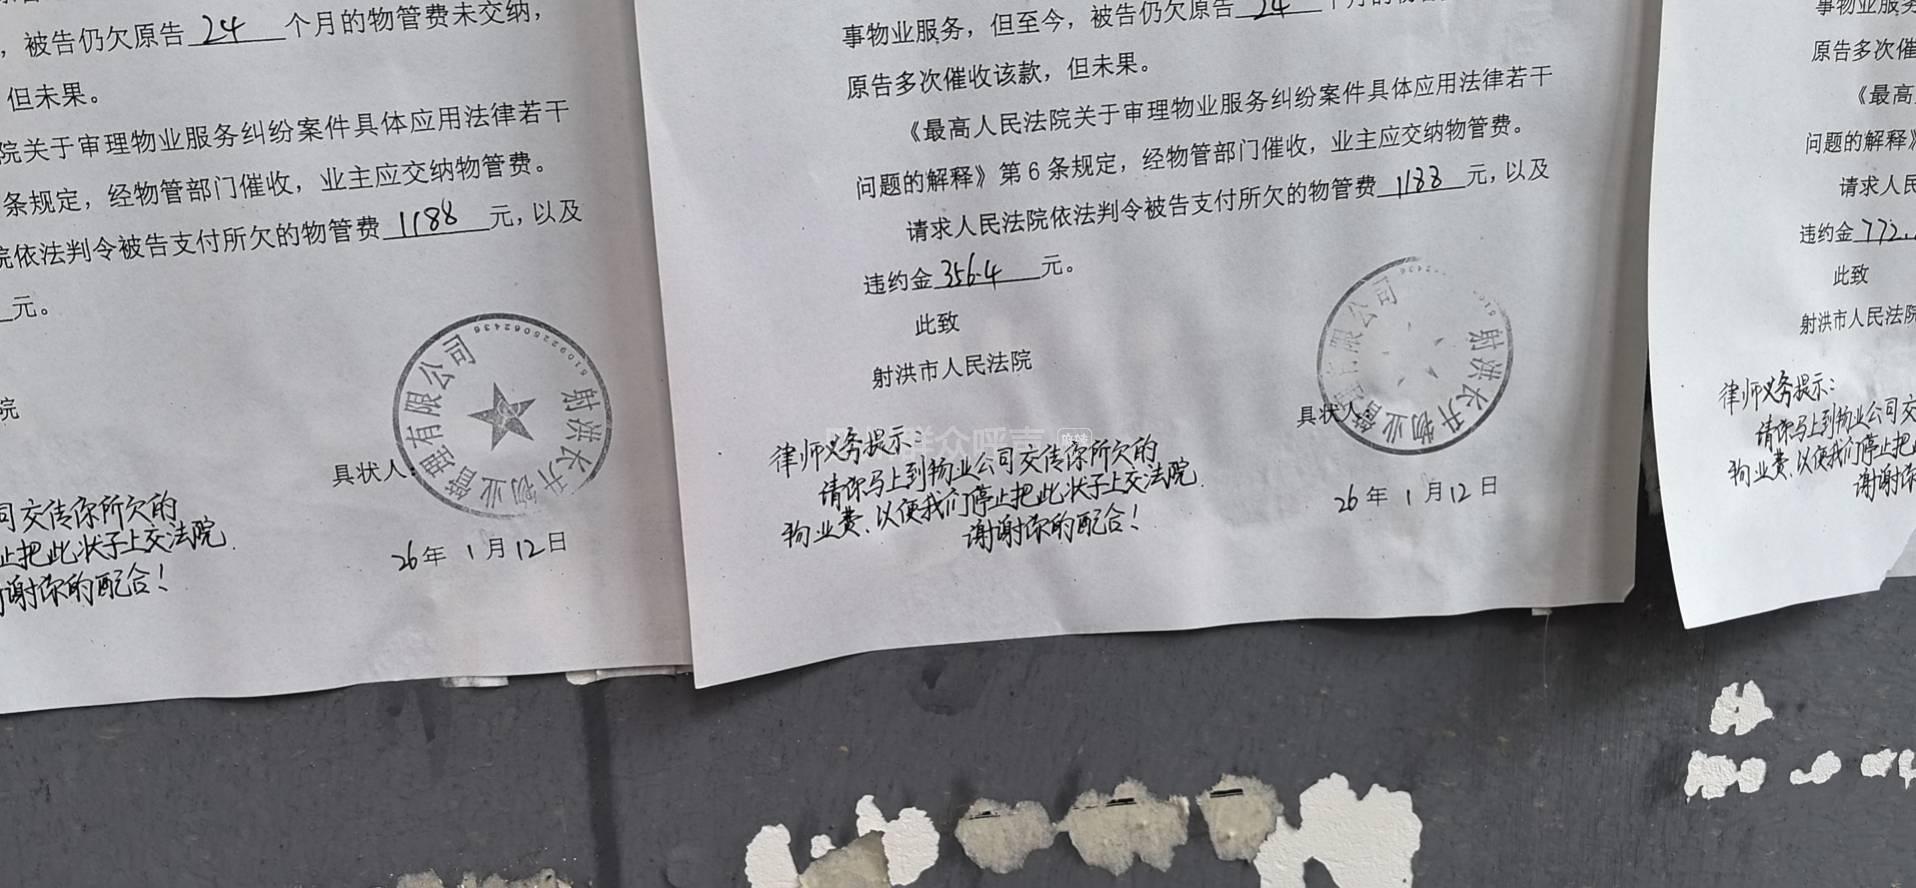 ，被告仍欠原告 24 个月的物管费未交纳，
但未果。
院关于审理物业服务纠纷案件具体应用法律若干
条规定，经物管部门催收，业主应交纳物管费。
院依法判令被告支付所欠的物管费 1188 元，以及
元。
院
射洪长升物业管理有限公司
具状人：
司交传你所欠的
止把此状子上交法院
谢谢你的配合！
26 年 1 月 12 日
事物业服务，但至今，被告仍欠原告 24 个月的物管
原告多次催收该款，但未果。
《最高人民法院关于审理物业服务纠纷案件具体应用法律若干
问题的解释》第6条规定，经物管部门催收，业主应交纳物管费。
请求人民法院依法判令被告支付所欠的物管费 1188 元，以及
违约金 356.4 元。
此致
射洪市人民法院
射洪长升物业管理有限公司
具状人
群众呼声
律师义务提示：
请你马上到物业公司交传你所欠的
物业费、以便我们停止把此状子上交法院.
谢谢你的配合！
26 年 1 月 12 日
事物业服务
原告多次催
《最高
问题的解释》
请求人民
违约金 772.
此致
射洪市人民法院
律师义务提示：
请你马上到物业公司交
物业费、以便我们停止把此
谢谢你